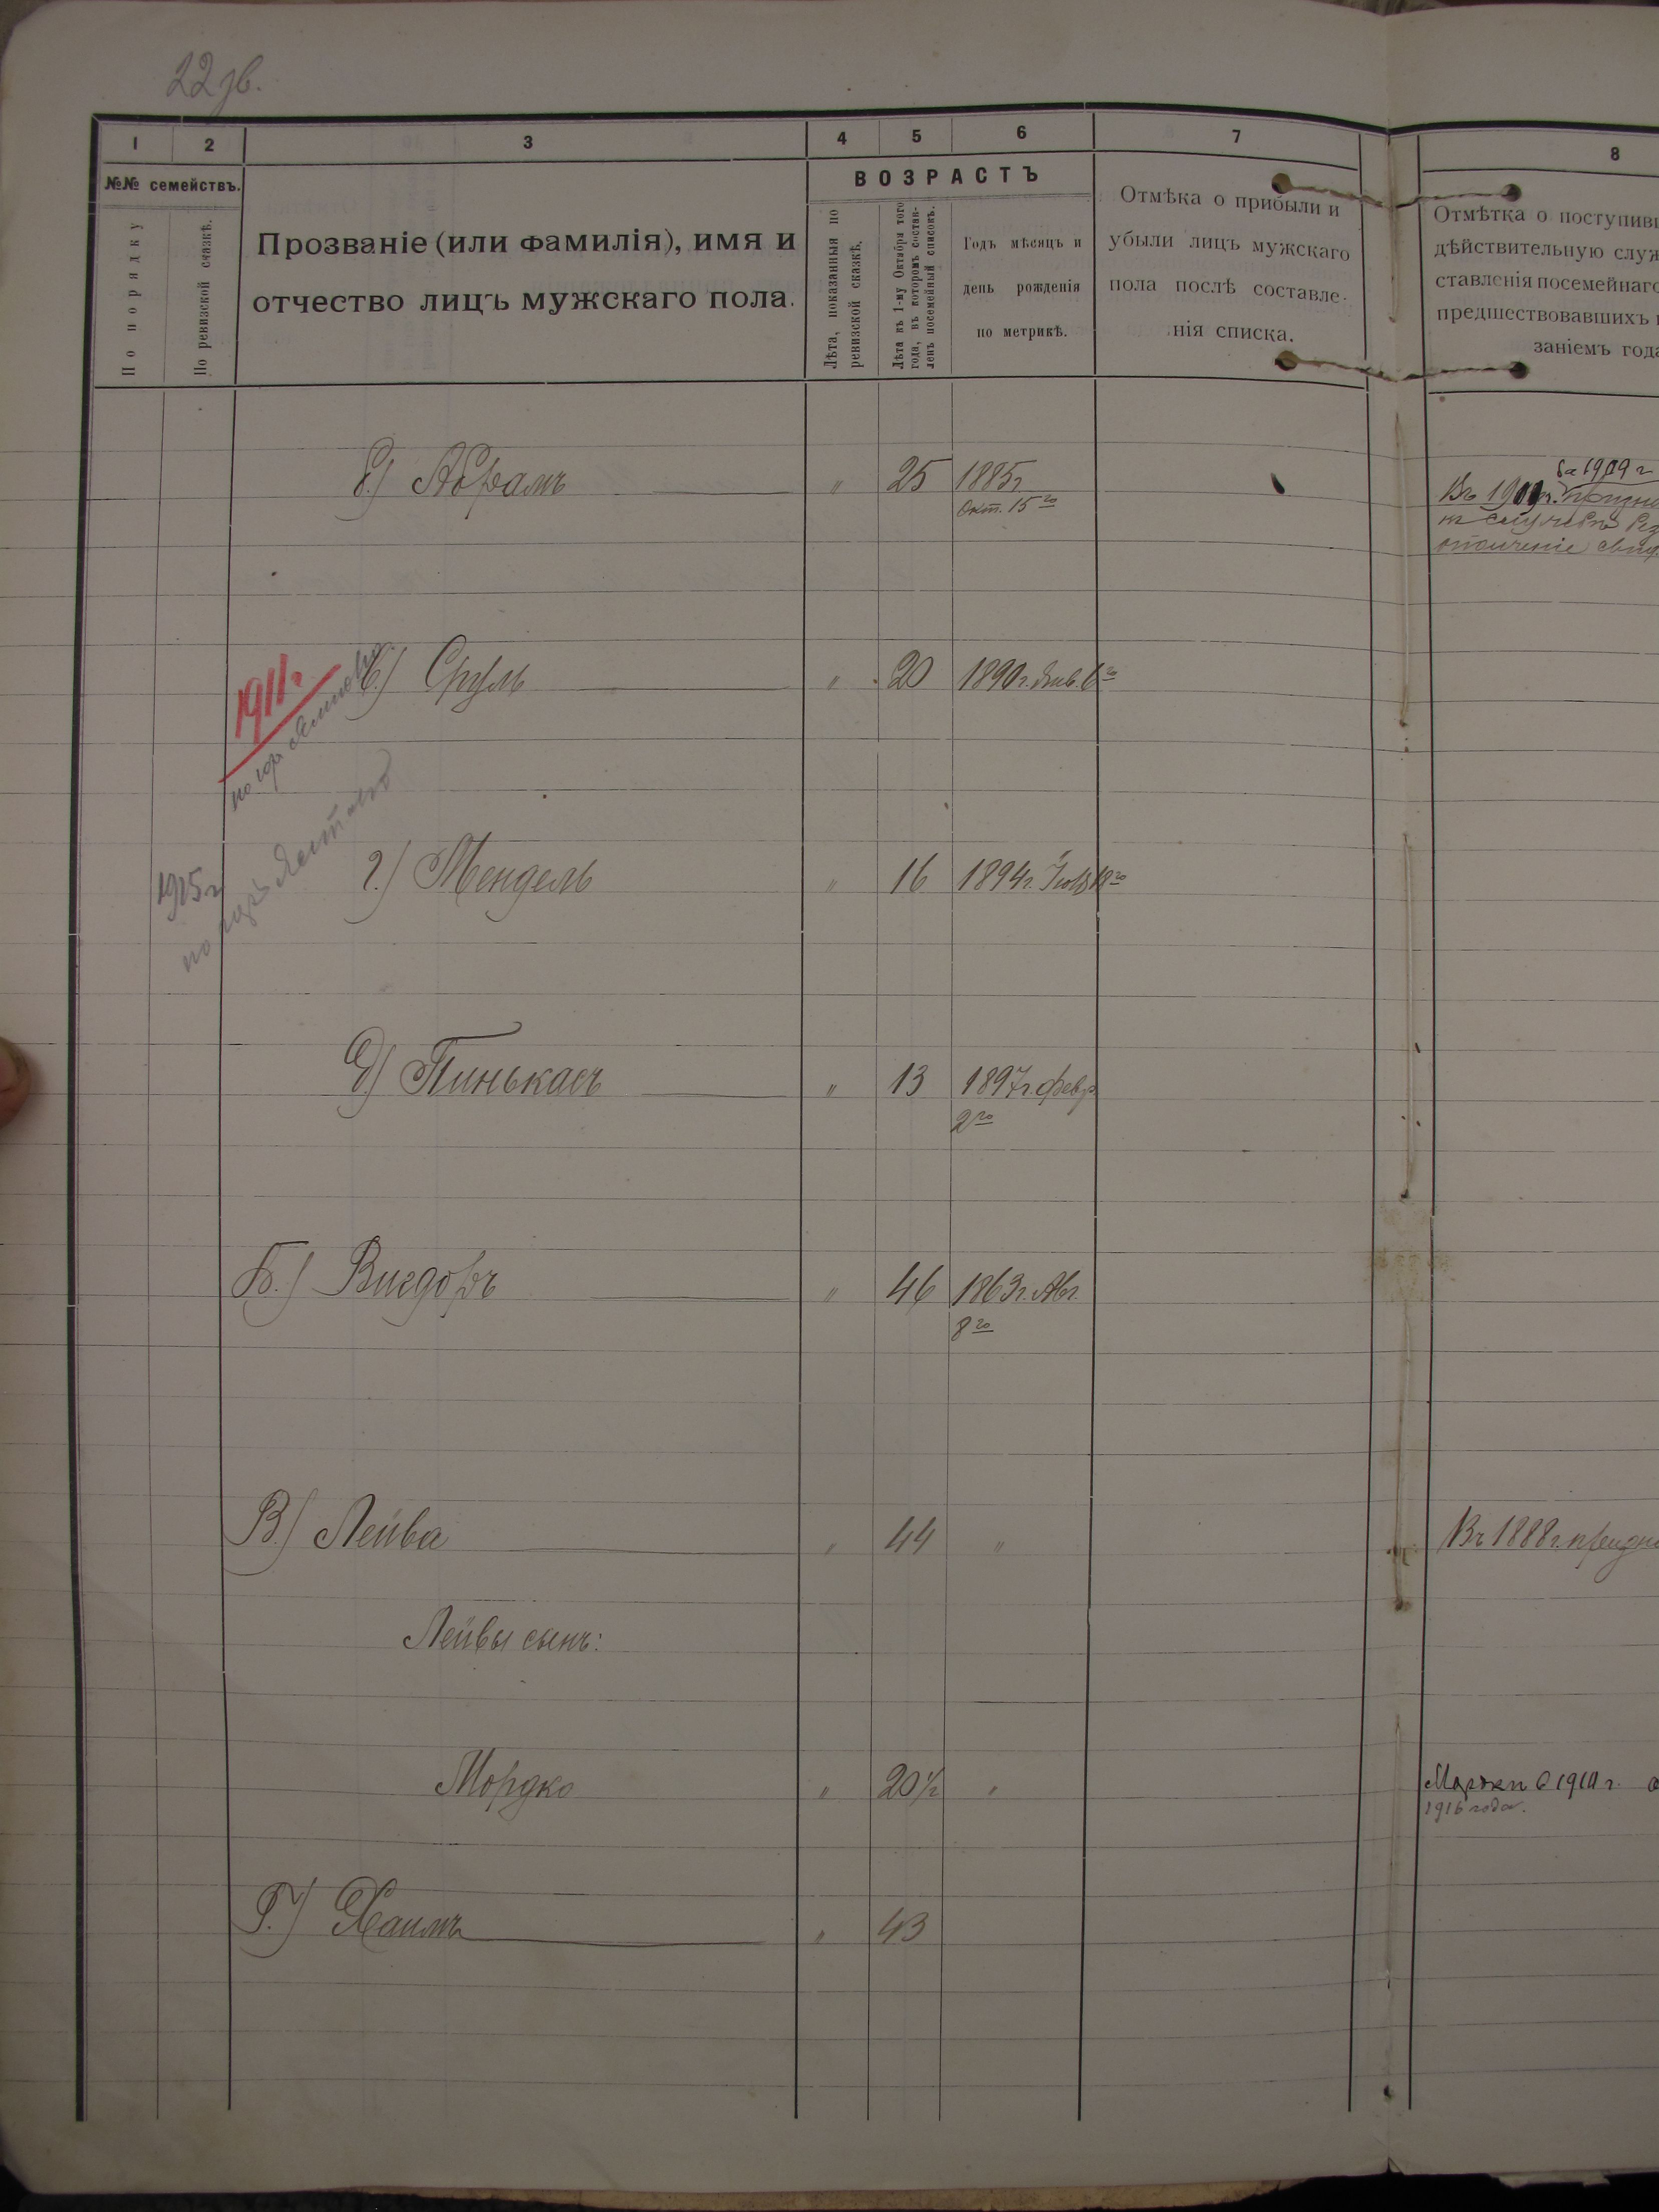 22 зв.
1 2 3 4 5 6 7 8
№№ семействъ.
По порядку
По ревизской сказкѣ.
Прозваніе (или фамилія), имя и
отчество лицъ мужскаго пола.
ВОЗРАСТЪ
Лѣта, показанныя по
ревизской сказкѣ.
Лѣта къ 1-му Октября того
года, въ которомъ состав-
ленъ посемейный списокъ.
Годъ мѣсяцъ и
день рожденія
по метрикѣ.
Отмѣка о прибыли и
убыли лицъ мужскаго
пола послѣ составле-
нія списка.
Отмѣтка о поступивш
дѣйствительную служ
ставленія посемейнаго
предшествовавшихъ
заніемъ года
б.) Абрамъ " 25 1885 г.
Окт. 15го
За 1909 г
Въ 19 г. призна
ополченіе
1911 г
в.) Сруль " 20 1890 г. Янв. 6го
1915 г
г.) Мендель " 16 1894 г. 18го
д) Пинькасъ " 13 1897 г. февр.
2го
Б.) Вигдоръ " 46 1863 г. Авг.
8го
В.) Лейва " 44 "
Въ 1888 г. призна
Лейвы сынъ:
Мордко " 20 1/2 "
1916 года.
Г.) Хаимъ " 43